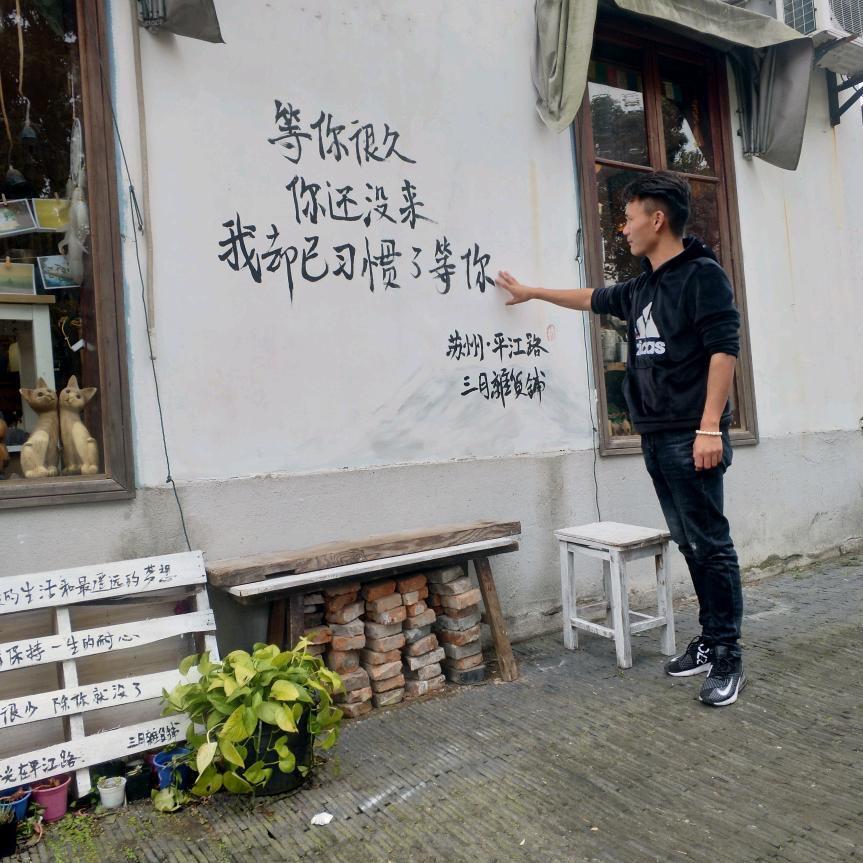 等你很久
你还没来
我却已习惯了等你
苏州·平江路
三月雜貨鋪
adidas
的生活和最遥远的梦想
保持一生的耐心
很少 除你就没了
三月雜貨鋪
光在平江路